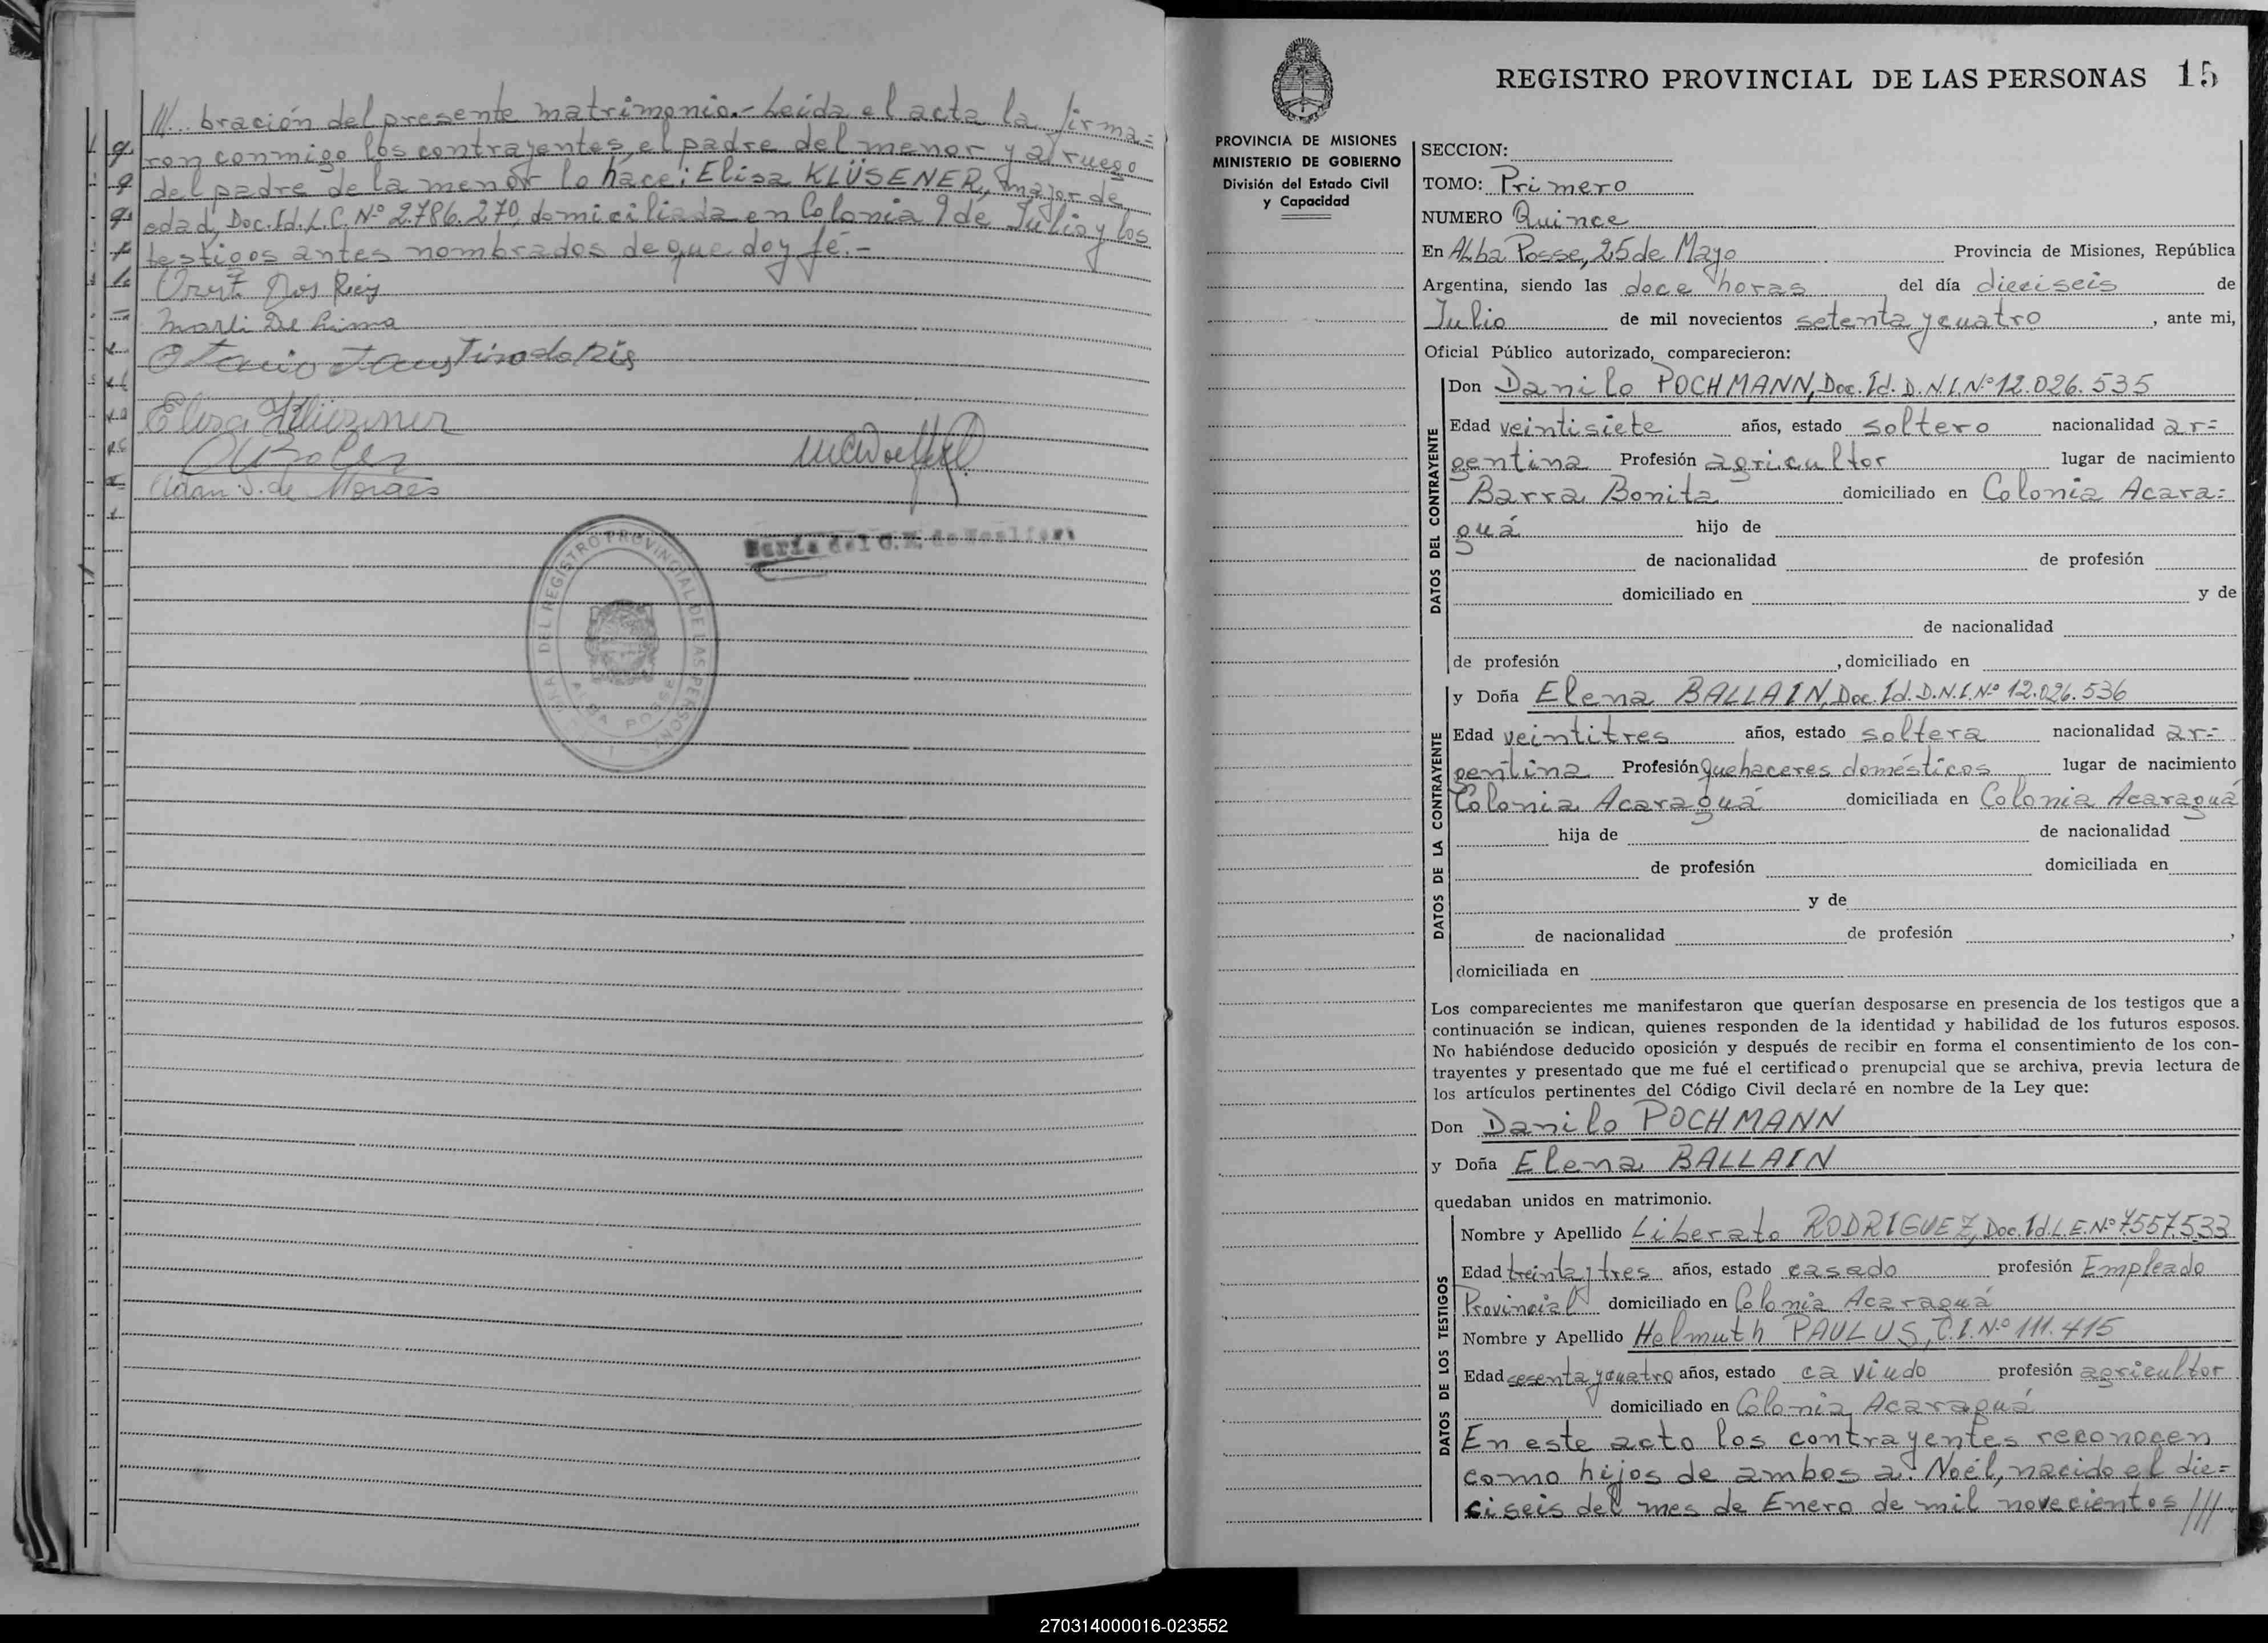 ///.. bración del presente matrimonio.- Leída el acta la firma=
ron conmigo los contrayentes, el padre del menor y a ruego
del padre de la menor lo hace: Elisa KLÜSENER, mayor de
edad, Doc. Id. L.C. Nº 2.786.270, domiciliada en Colonia 9 de Julio y los
testigos antes nombrados de que doy fé.-
Dos Reis
Marli De Lima
Elisa Klüsener
Adan S. de Moraes
DEL REGISTRO PROVINCIAL DE LAS PERSONAS
ALBA POSSE
REGISTRO PROVINCIAL DE LAS PERSONAS 15
PROVINCIA DE MISIONES
MINISTERIO DE GOBIERNO
División del Estado Civil
y Capacidad
SECCION:
TOMO: Primero
NUMERO Quince
En Alba Posse, 25 de Mayo Provincia de Misiones, República
Argentina, siendo las doce horas del día dieciseis de
Julio de mil novecientos setenta y cuatro, ante mi,
Oficial Público autorizado, comparecieron:
DATOS DEL CONTRAYENTE
Don Danilo POCHMANN, Doc. Id. D.N.I. Nº 12.026.535
Edad veintisiete años, estado soltero nacionalidad ar=
gentina Profesión agricultor lugar de nacimiento
Barra Bonita domiciliado en Colonia Acara=
guá hijo de
de nacionalidad de profesión
domiciliado en y de
de nacionalidad
de profesión , domiciliado en
DATOS DE LA CONTRAYENTE
y Doña Elena BALLAIN, Doc. Id. D.N.I. Nº 12.026.536
Edad veintitres años, estado soltera nacionalidad ar=
gentina Profesión quehaceres domésticos lugar de nacimiento
Colonia Acaraguá domiciliada en Colonia Acaraguá
hija de de nacionalidad
de profesión domiciliada en
y de
de nacionalidad de profesión ,
domiciliada en
Los comparecientes me manifestaron que querían desposarse en presencia de los testigos que a
continuación se indican, quienes responden de la identidad y habilidad de los futuros esposos.
No habiéndose deducido oposición y después de recibir en forma el consentimiento de los con-
trayentes y presentado que me fué el certificado prenupcial que se archiva, previa lectura de
los artículos pertinentes del Código Civil declaré en nombre de la Ley que:
Don Danilo POCHMANN
y Doña Elena BALLAIN
quedaban unidos en matrimonio.
DATOS DE LOS TESTIGOS
Nombre y Apellido Liberato RODRIGUEZ, Doc. Id. L.E. Nº 7.557.533
Edad treinta y tres años, estado casado profesión Empleado
Provincial domiciliado en Colonia Acaraguá
Nombre y Apellido Helmuth PAULUS, C.I. Nº 111.415
Edad sesenta y cuatro años, estado ca viudo profesión agricultor
domiciliado en Colonia Acaraguá
En este acto los contrayentes reconocen
como hijos de ambos a: Noél, nacido el die=
ciseis del mes de Enero de mil novecientos ///
270314000016-023552